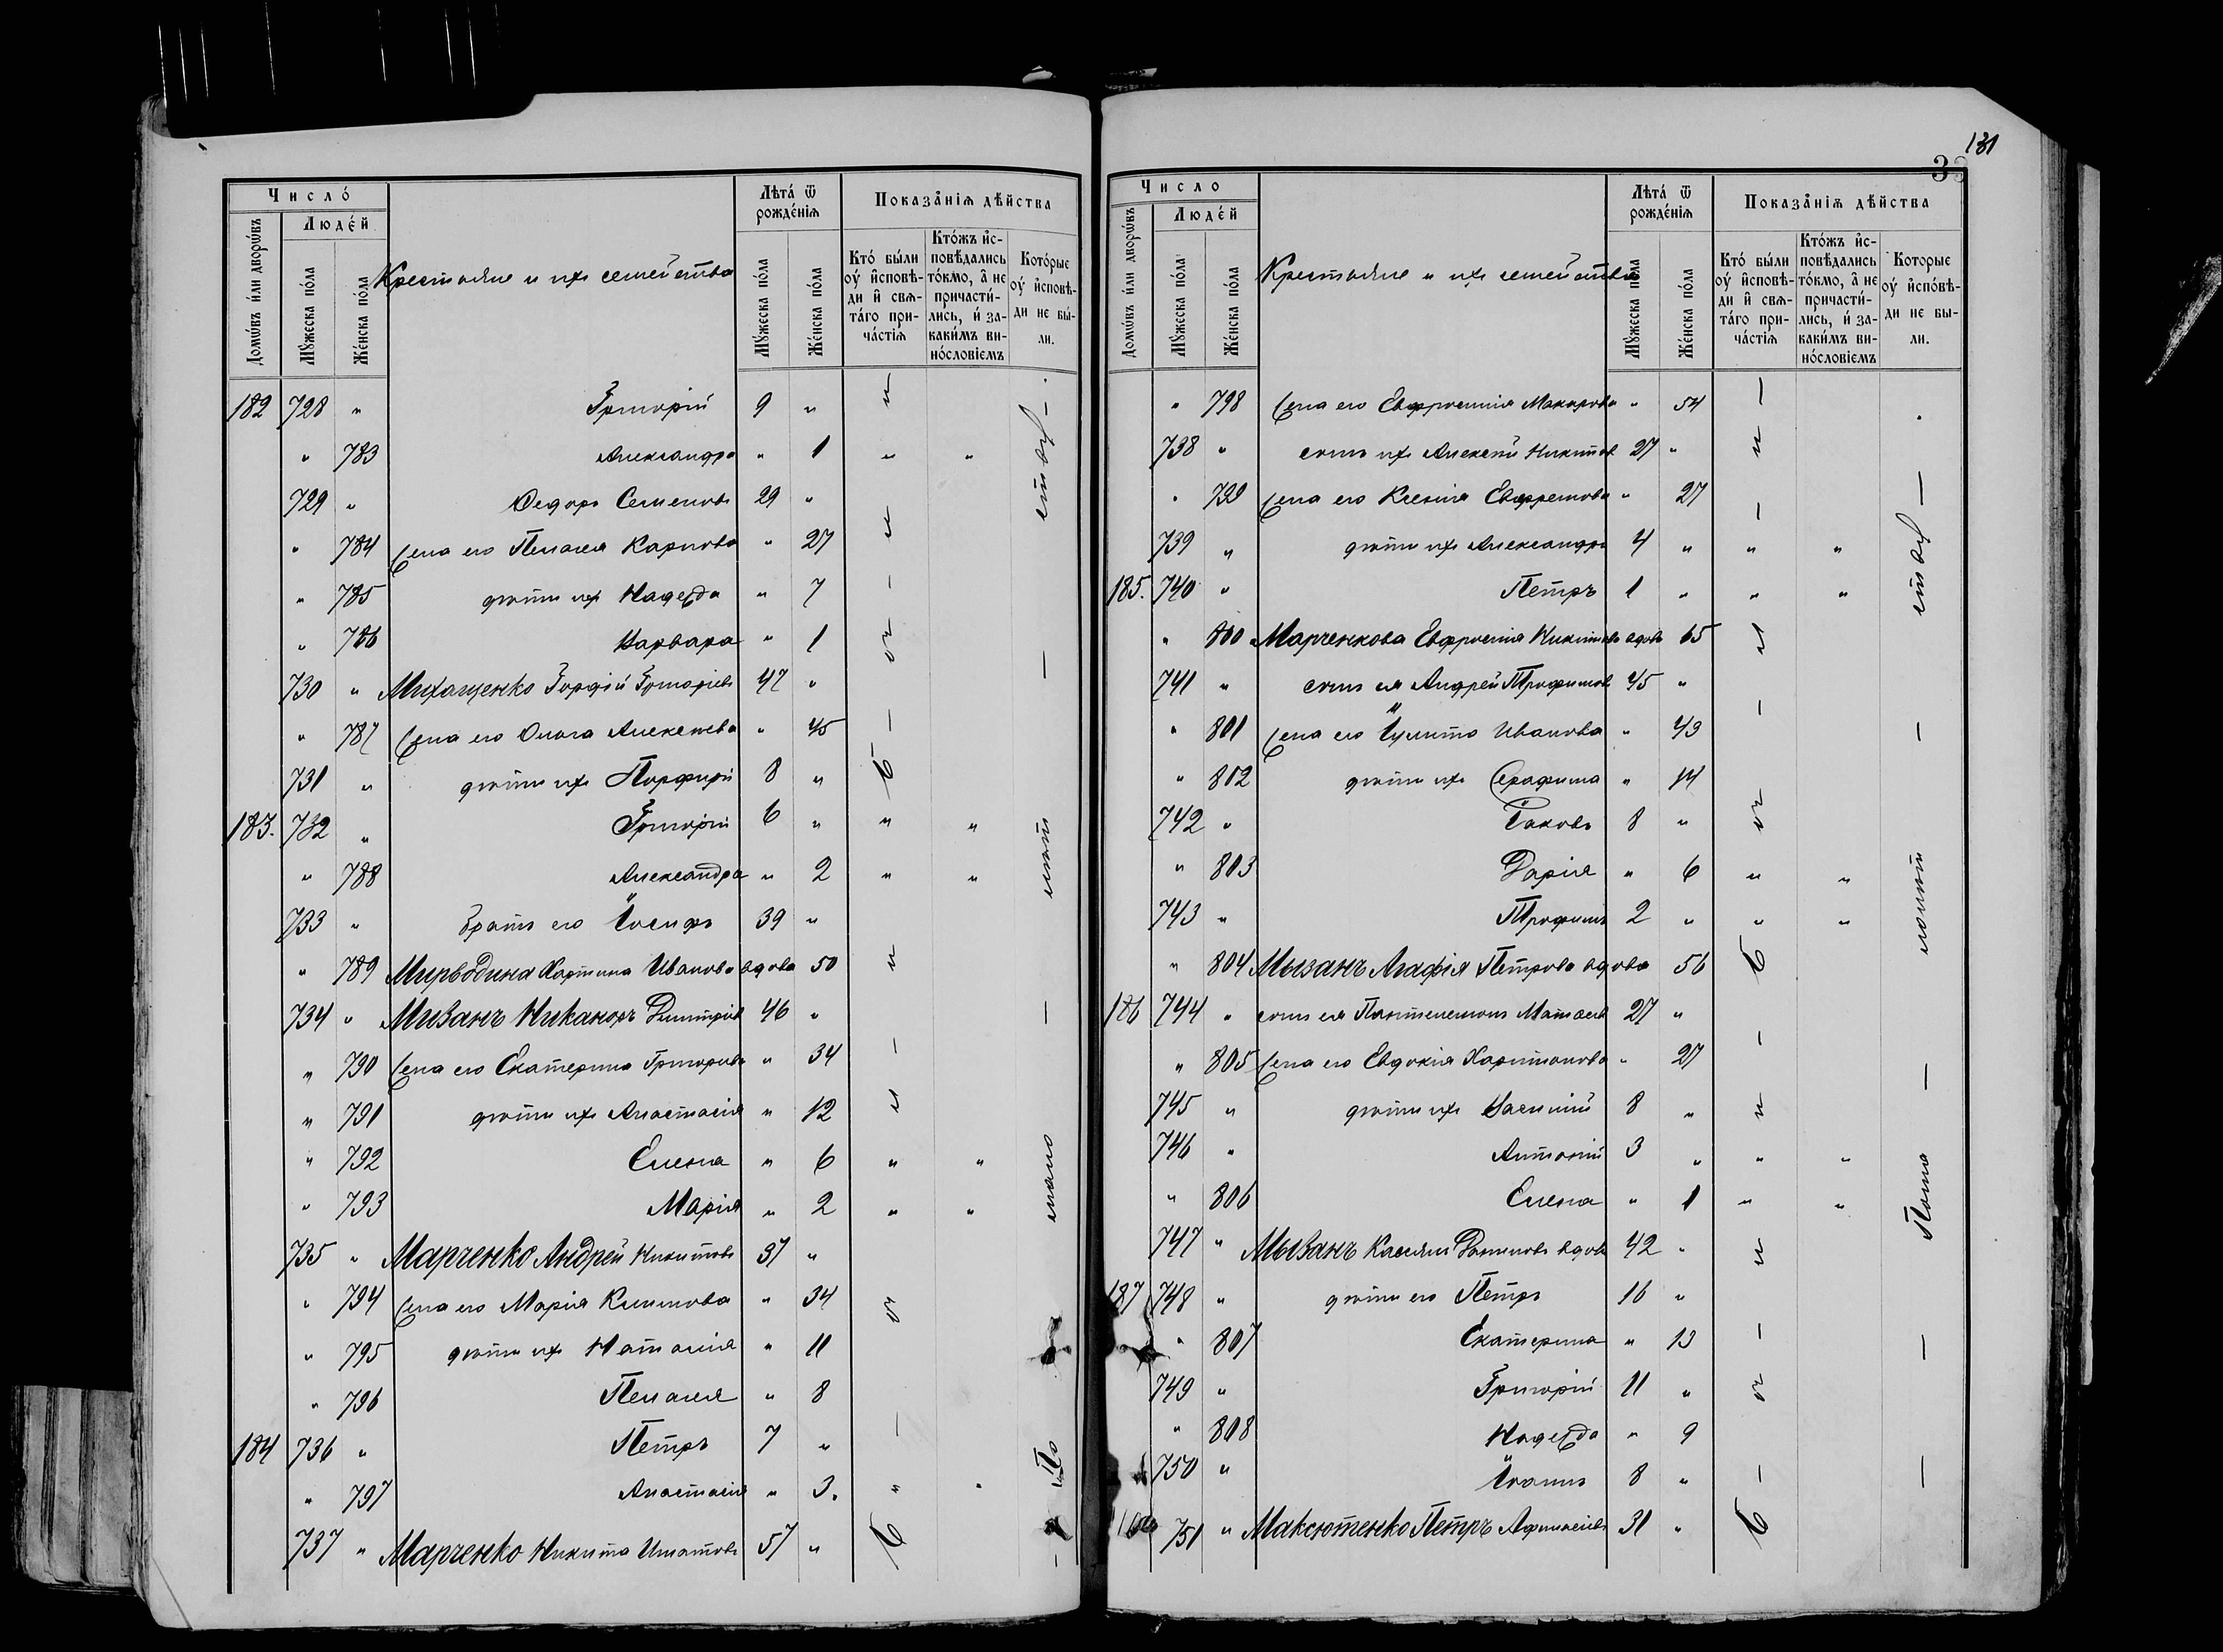 131
33
Число́
Людє́й
Домѡ́въ и́ли дворѡ́въ
Мꙋ́жеска по́ла
Жє́нска по́ла
Крестьяне и ихъ семейства
Лѣта́ ѿ рождє́нїѧ
Мꙋ́жеска по́ла
Жє́нска по́ла
Показа́нїѧ дѣ́йства
Кто́ бы́ли оу҆ и҆сповѣ-
ди и҆ свѧ-
та́го при-
ча́стїѧ
Кто́жъ и҆с-
повѣ́дались
то́кмо, а҆ не
причасти́-
лись, и҆ за-
каки́мъ ви-
но́словїемъ
Кото́рые
оу҆ и҆сповѣ́-
ди не бы́-
ли.
182 728 " Григорій 9 " и
" 783 Александра " 1 " "
729 " Ѳедоръ Семеновъ 29 "
" 784 Жена его Пелагея Карпова " 27 и
" 785 дѣти ихъ Надежда " 7 —
" 786 Варвара " 1
730 " Михащенко Гордѣй Григорьевъ 47 "
" 787 Жена его Ольга Алексеева " 45 —
731 " дѣти ихъ Порфирій 8 "
183. 732 " Григорій 6 " " "
" 788 Александра " 2 " "
733 " братъ его Іосифъ 39 "
" 789 Миръводина Хартина Иванова вдова 50 и
734 " Мизанъ Никаноръ Димитріевъ 46 "
" 790 Жена его Екатерина Григорьева " 34 —
" 791 дѣти ихъ Анастасія " 12 и
" 792 Елена " 6 " "
" 793 Марія " 2 " "
735 " Марченко Андрей Никитовъ 37 "
" 794 Жена его Марія Климова " 34
" 795 дѣти ихъ Наталія " 11
" 796 Пелагея " 8
184 736 " Петръ 7 " —
" 797 Анастасія " 3. " "
737 " Марченко Никита Игнатовъ 57 "
По мало лѣт ству
Число
Людє́й
Домѡ́въ и́ли дворѡ́въ
Мꙋ́жеска по́ла
Жє́нска по́ла
Крестьяне и ихъ семейства
Лѣта́ ѿ рождє́нїѧ
Мꙋ́жеска по́ла
Жє́нска по́ла
Показа́нїѧ дѣ́йства
Кто́ бы́ли
оу҆ и҆сповѣ́-
ди и҆ свѧ-
та́го при-
ча́стїѧ
Кто́жъ и҆с-
повѣ́дались
то́кмо, а҆ не
причасти́-
лись, и҆ за-
каки́мъ ви-
но́словїемъ
Которые
оу҆ и҆спо́вѣ-
ди не бы-
ли.
" 798 Жена его Евфросинія Макарова " 54 —
738 " сынъ ихъ Алексѣй Никитовъ 27 " и
" 799 Жена его Ксенія Евфремова " 27 —
739 " дѣти ихъ Александръ 4 " " "
185. 740 " Петръ 1 " " "
" 800 Марченкова Евфросинія Никитова вдова 65 и
741 " сынъ ея Андрей Трофимовъ 45 "
" 801 Жена его Іулита Иванова " 43 —
" 802 дѣти ихъ Серафима " 14
742 " Іаковъ 8 "
" 803 Дарія " 6 " "
743 " Трофимъ 2 " " "
" 804 Мызанъ Агафія Петрова вдова 56
186 744 " сынъ ея Пантелемонъ Матвеевъ 27 "
" 805 Жена его Евдокія Харитонова " 27 —
745 " дѣти ихъ Василій 8 " и
746 " Антоній 3 " " "
" 806 Елена " 1 " "
747 " Мызанъ Касьянъ Даниловъ вдовъ 42 " и
187 748 " дѣти его Петръ 16 "
" 807 Екатерина " 13 —
749 " Григорій 11 "
" 808 Надежда " 9
750 " Іоаннъ 8 " —
751 " Максютенко Петръ Афанасіевъ 31 "
Пома лолѣт ству